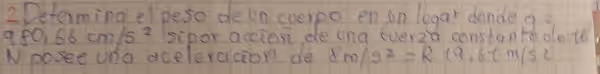 2 Determina el peso de un cuerpo en un lugar donde g =
980,66 cm/s² si por accion de una fuerza constante de 16
N posee una aceleracion de 8m/s² = R 19,6